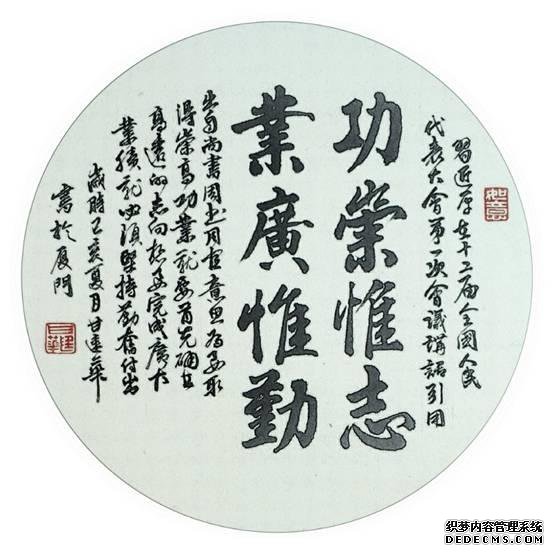 習近平在十二届全國人民
代表大會第一次會議講話引用
如意
功崇惟志
業廣惟勤
出自尚書周书周官意思为要取
得崇高功業就要首先确立
高遠的志向想要完成廣大
業績就必須堅持勤奮付出
歲時己亥夏月甘達華
寫於厦門
织梦内容管理系统
DEDECMS.COM